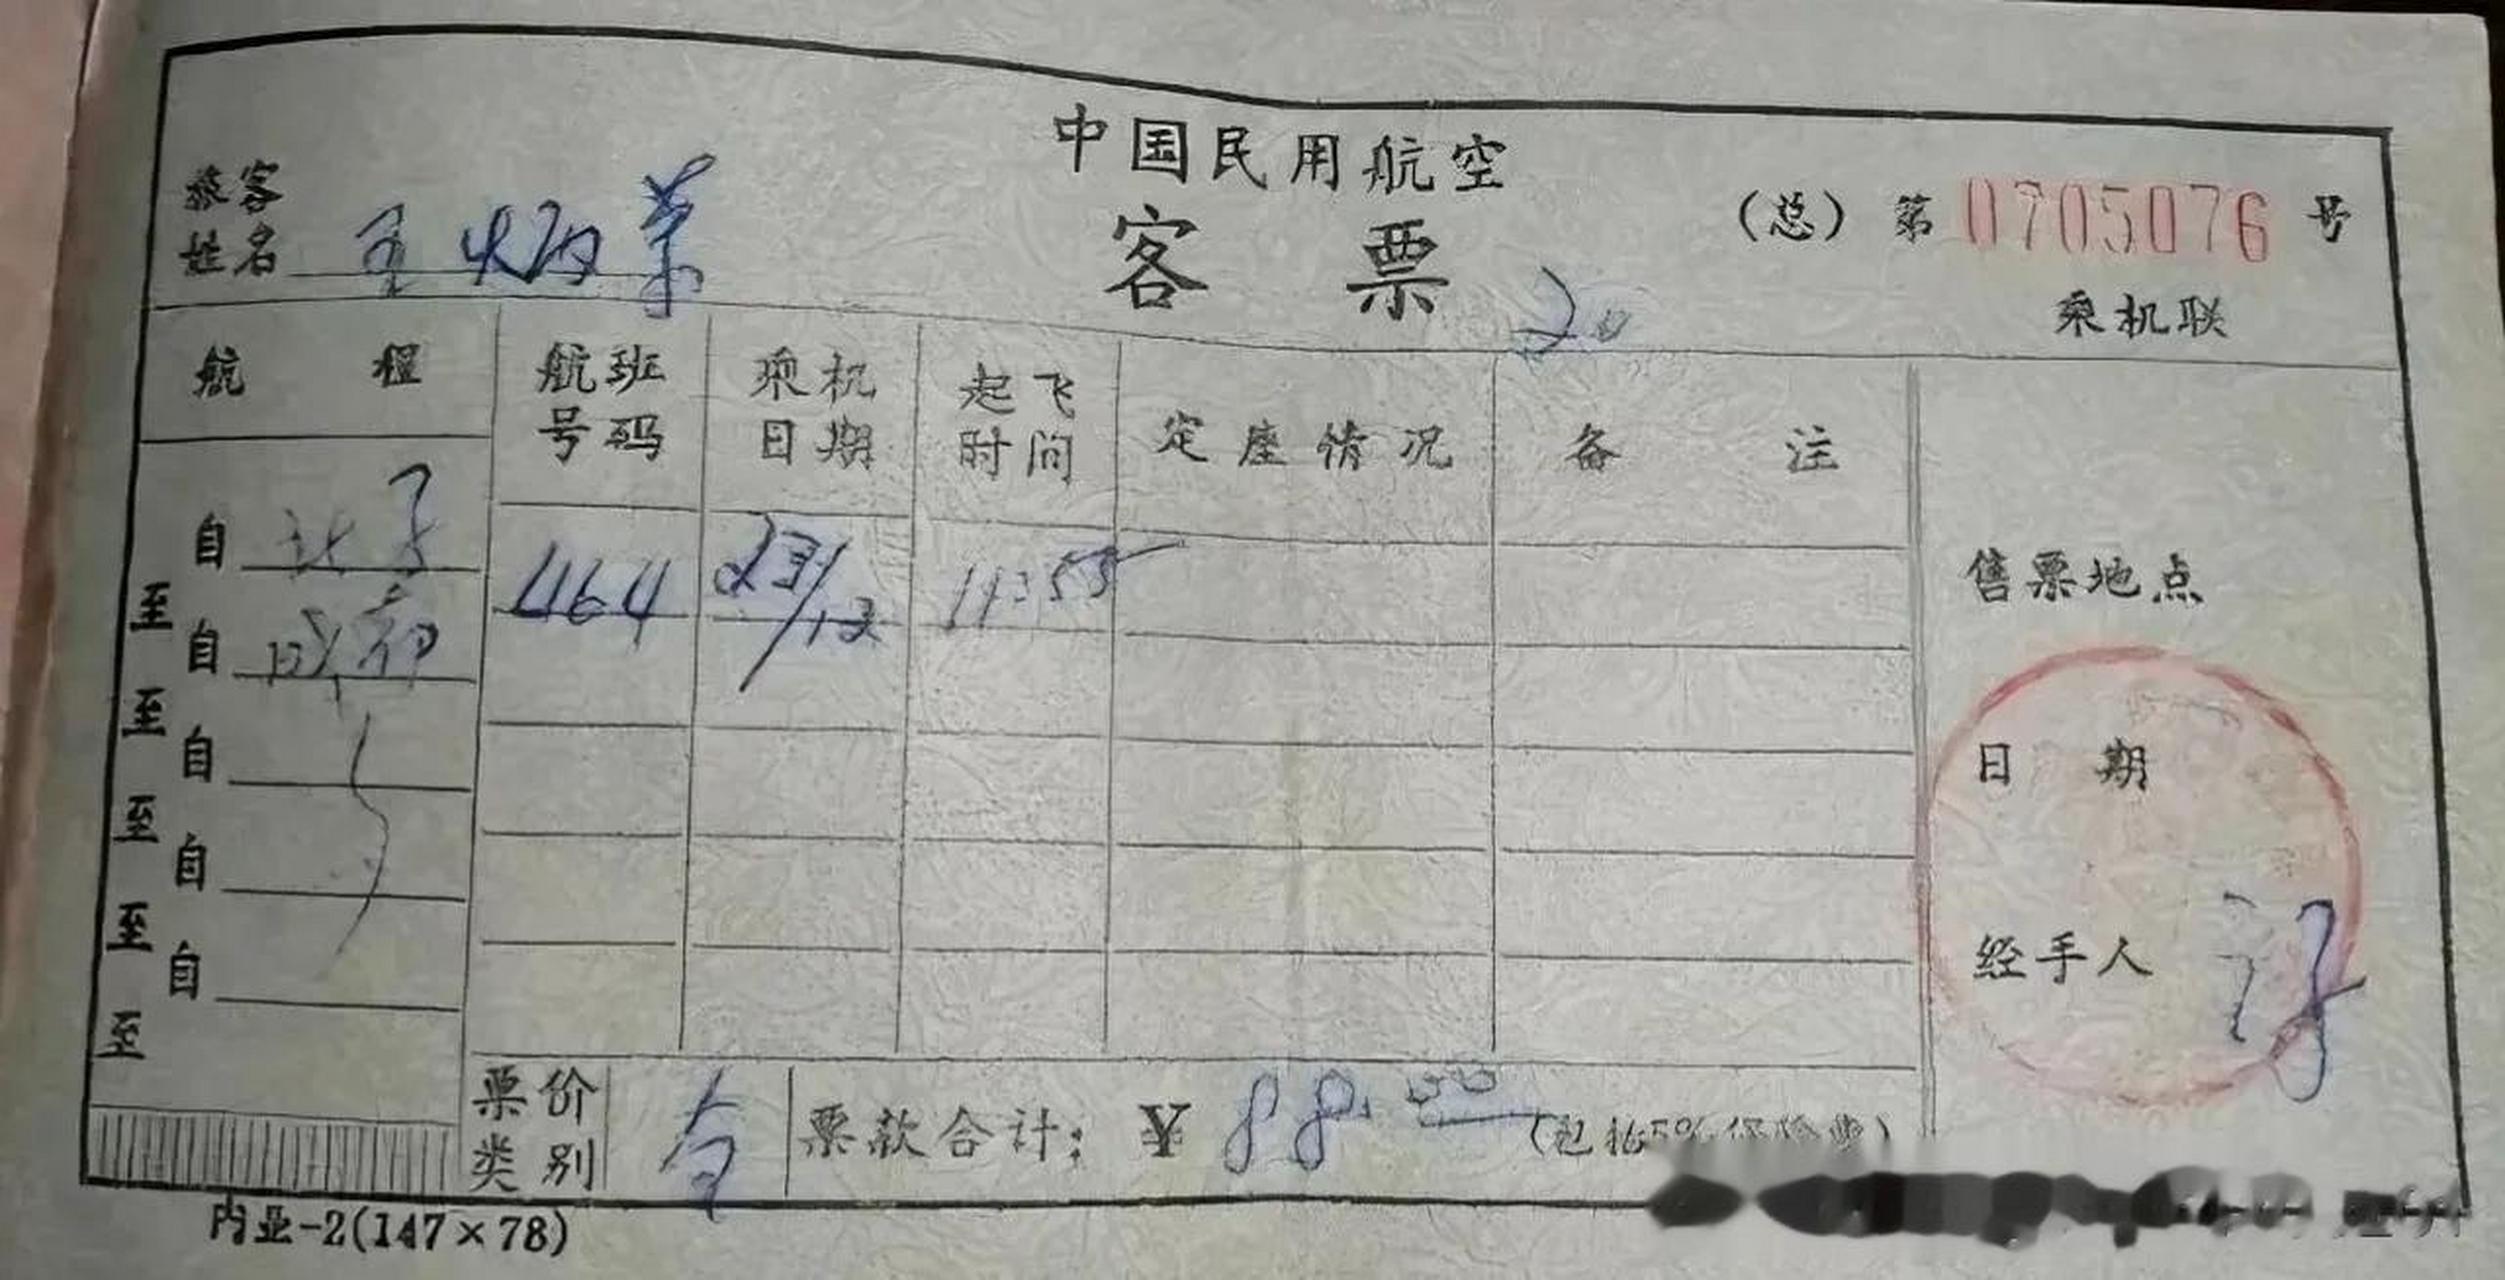 中国民用航空
客票
旅客
姓名
(总) 第 0705076 号
乘机联
20
航程
航班
号码
乘机
日期
起飞
时间
定座情况
备注
自 北京
至
自 成都
至
自
至
自
至
自
至
464
23/12
11:55
售票地点
日期
经手人
票价
类别
票款合计: ¥ 88.00
(包括5%保险费)
内业-2(147×78)